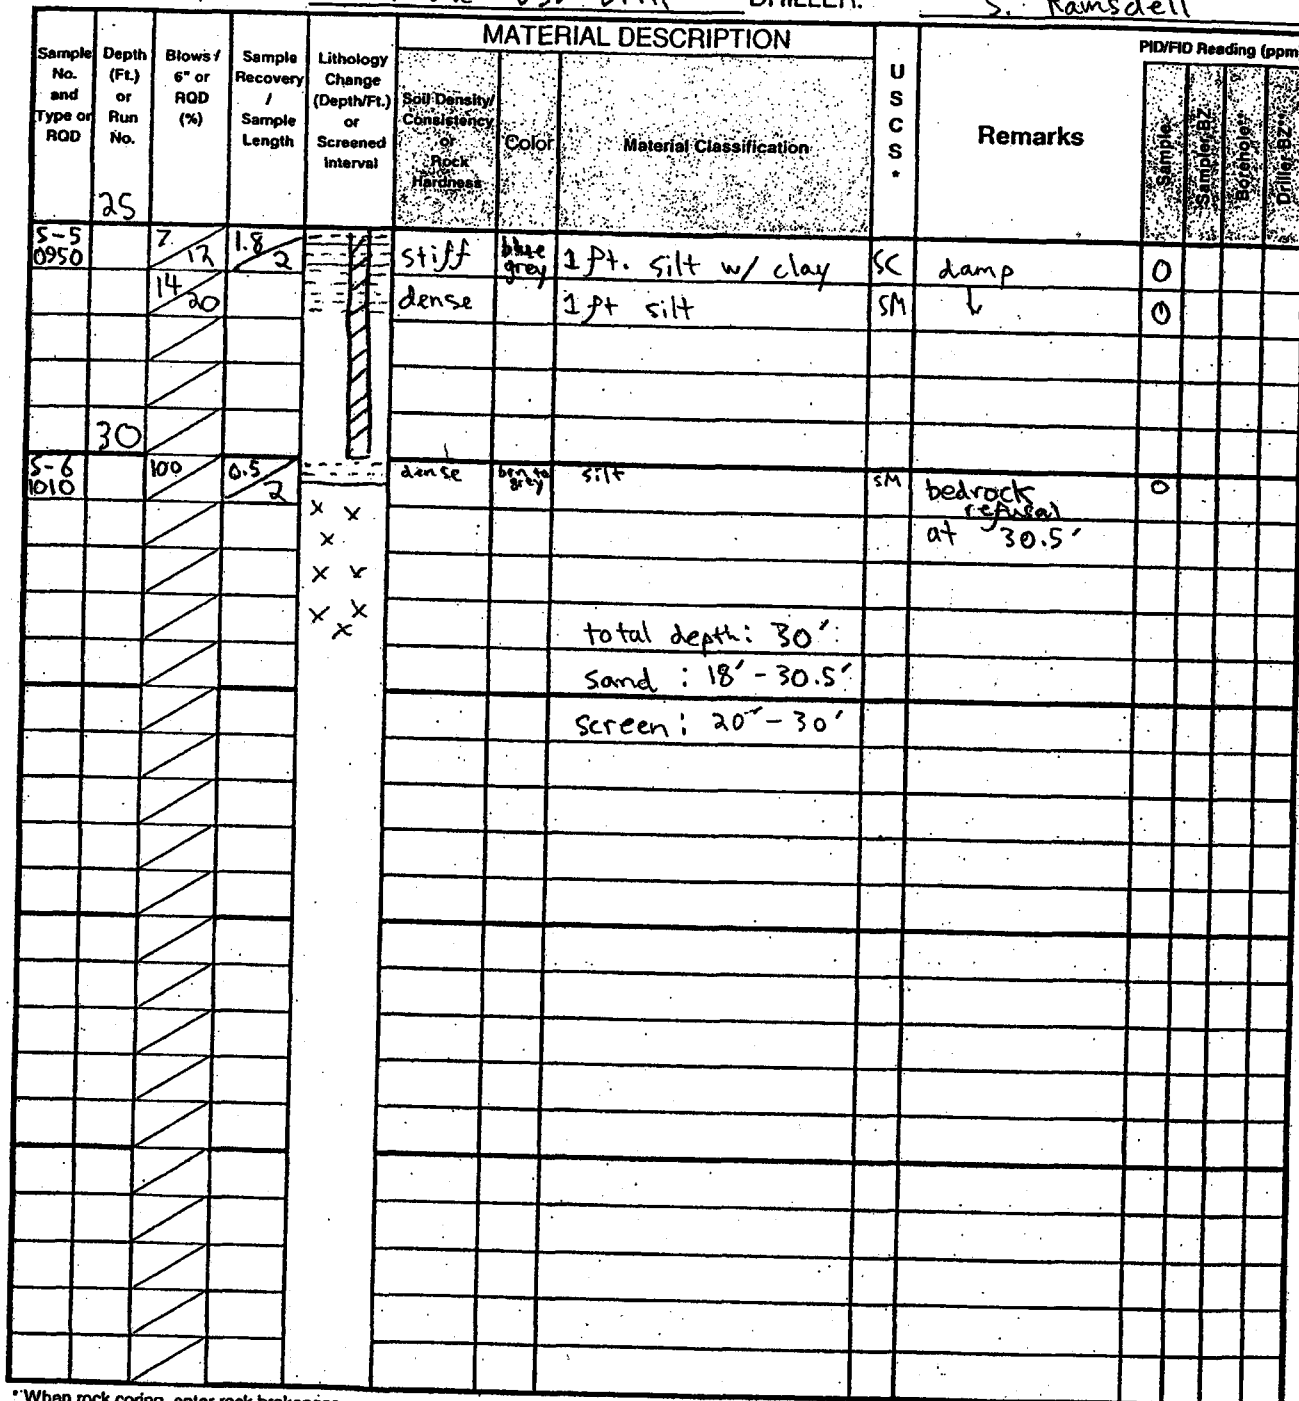 DRILLER: S. Ramsdell
MATERIAL DESCRIPTION
PID/FID Reading (ppm
Sample No. and Type or RQD
Depth (Ft.) or Run No.
Blows / 6" or RQD (%)
Sample Recovery / Sample Length
Lithology Change (Depth/Ft.) or Screened Interval
Soil Density/ Consistency or Rock Hardness
Color
Material Classification
U S C S *
Remarks
Sample
Sampler BZ
Borehole**
Driller BZ**
25
S-5 0950 7/12 1.8/2 stiff blue grey 1 ft. silt w/ clay SC damp 0
14/20 dense 1 ft silt SM ↓ 0
30
S-6 1010 100 0.5/2 dense brn to grey silt SM bedrock 0
refusal
at 30.5'
total depth: 30'
sand : 18' - 30.5'
screen: 20' - 30'
* When rock coring, enter rock brokeness